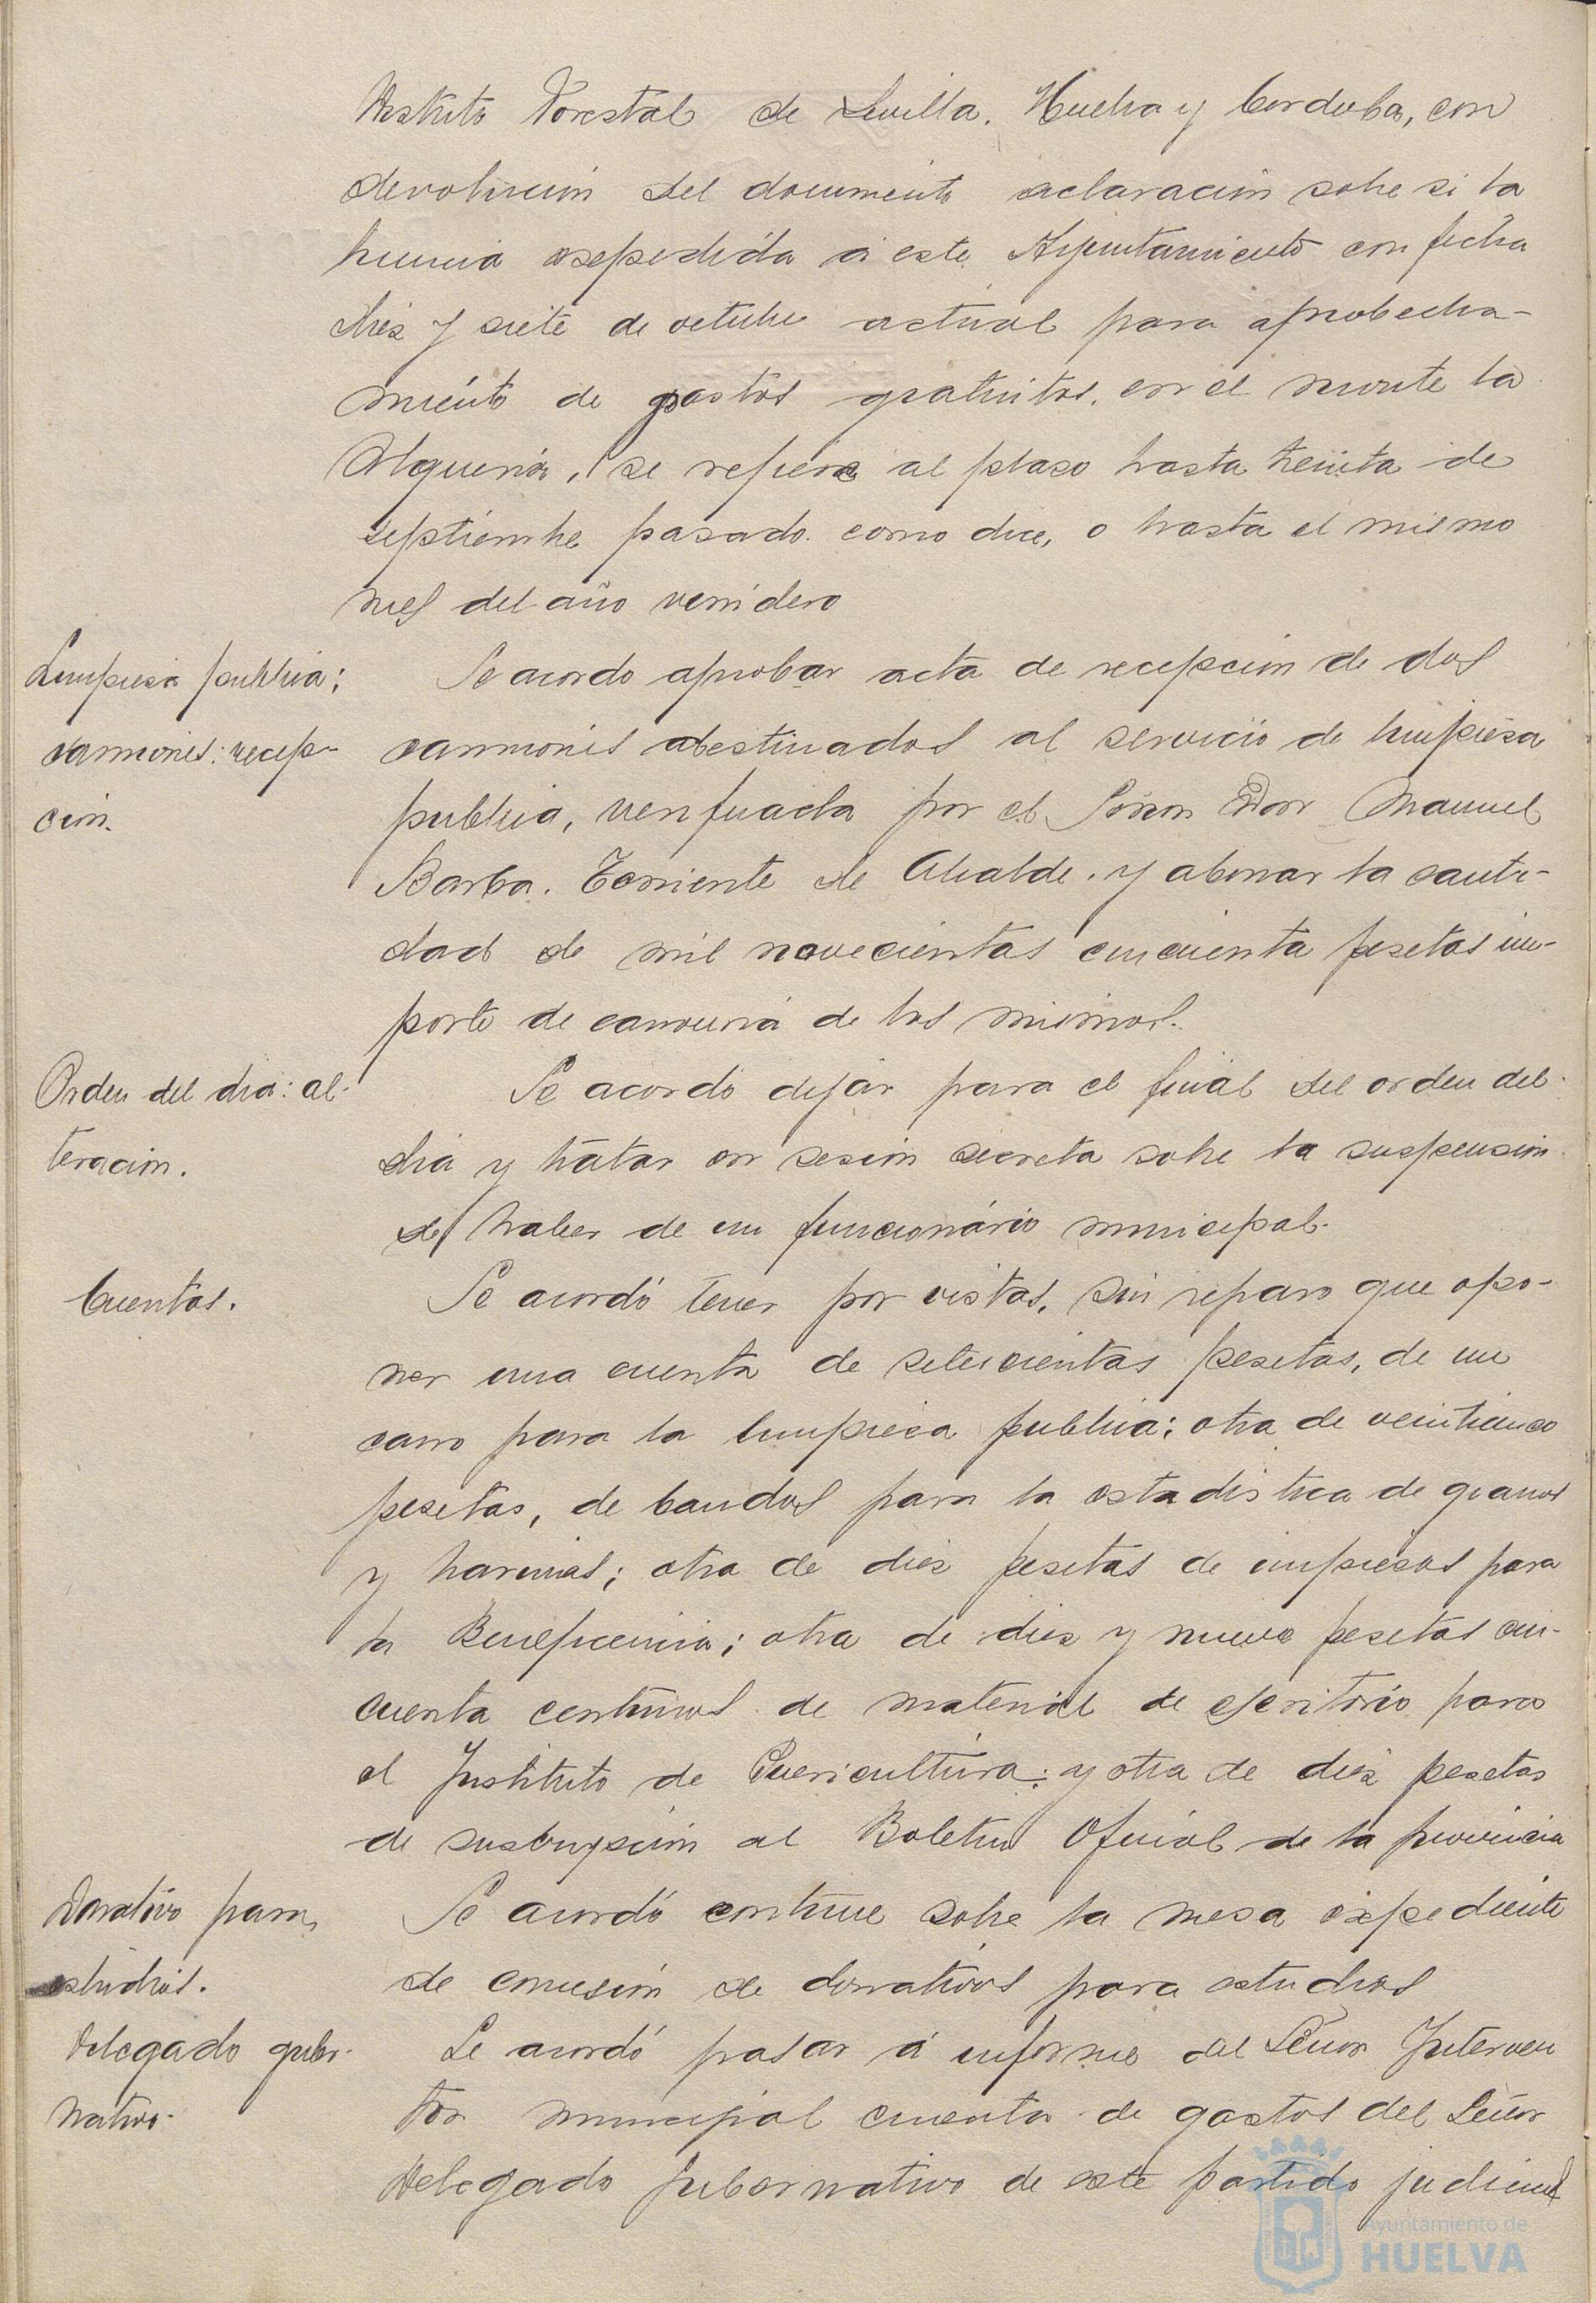 Distrito Forestal de Sevilla, Huelva y Cordoba, con
devolucion del documento aclaracion sobre si la
licencia expedida á este Ayuntamiento con fecha
diez y siete de octubre actual para aprobecha-
miento de pastos gratuitos, en el monte la
Alqueria, se refiere al plazo hasta treinta de
septiembre pasado como dice, o hasta el mismo
mes del año venidero
Limpieza publica;
carmones: recep-
cion.
Se acordo aprobar acta de recepcion de dos
carmones destinados al servicio de limpieza
publica, verificada por el Señor Don Manuel
Barba, Teniente de Alcalde, y abonar la canti-
dad de mil novecientas cincuenta pesetas im-
porte de carroceria de los mismos.
Orden del dia: al-
teracion.
Se acordó dejar para el final del orden del
dia y tratar en sesion secreta sobre la suspension
de haber de un funcionário municipal.
Cuentas.
Se acordó tener por vistas, sin reparo que opo-
ner una cuenta de setecientas pesetas, de un
carro para la limpieza publica; otra de veinticinco
pesetas, de bandos para la estadistica de granos
y harinas; otra de diez pesetas de impresos para
la Beneficencia; otra de diez y nueve pesetas cin-
cuenta centimos de material de escritorio para
el Instituto de Puericultura; y otra de diez pesetas
de suscripción al Boletin Oficial de la provincia
Donativo para
estudios.
Se acordó continue sobre la mesa expediente
de emisión de donativos para estudios
Delegado guber-
nativo.
Se acordó pasar á informe del Señor Interven
tor municipal cuenta de gastos del Señor
Delegado gubernativo de este partido judicial
Ayuntamiento de
HUELVA